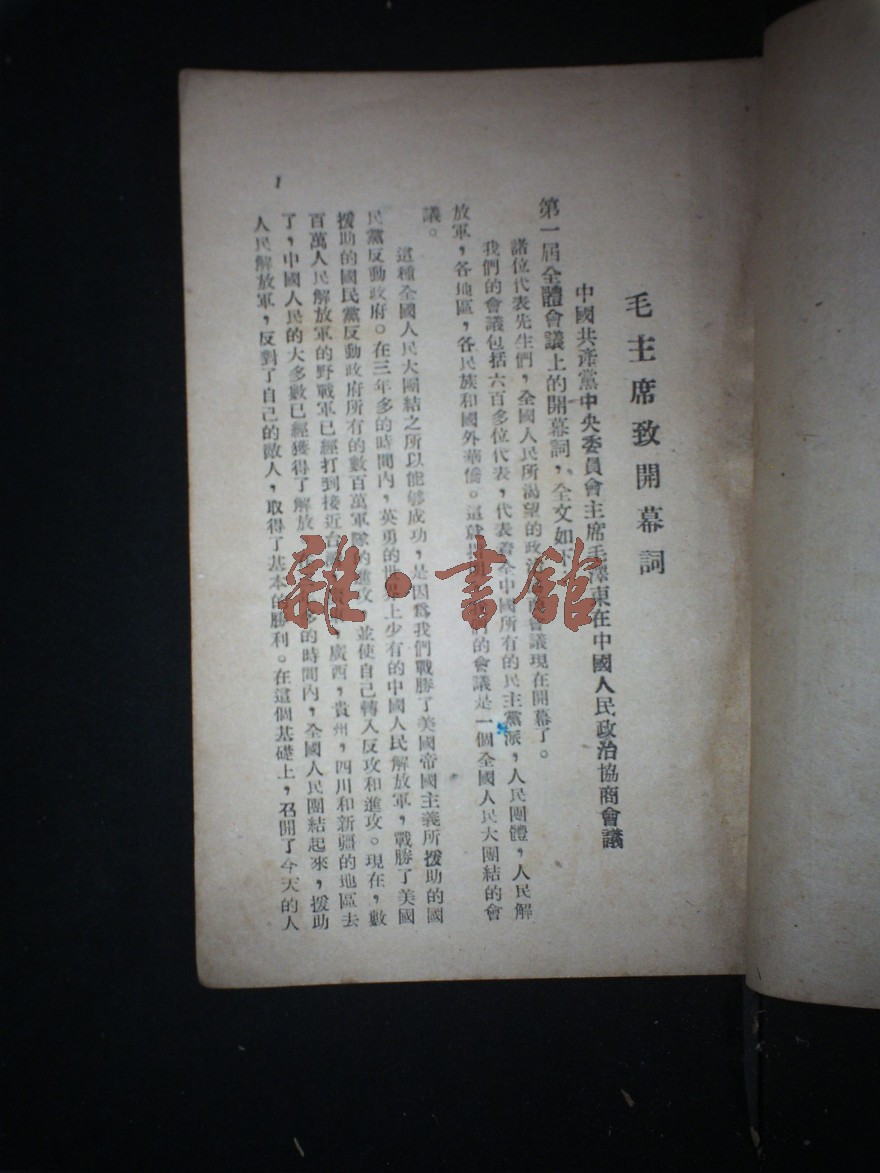 毛主席致開幕詞
中國共產黨中央委員會主席毛澤東在中國人民政治協商會議
第一屆全體會議上的開幕詞，全文如下
諸位代表先生們，全國人民所渴望的政治 會議現在開幕了。
我們的會議包括六百多位代表，代表着全中國所有的民主黨派，人民團體，人民解
放軍，各地區，各民族和國外華僑。這就 們的會議是一個全國人民大團結的會
議。
這種全國人民大團結之所以能够成功，是因爲我們戰勝了美國帝國主義所援助的國
民黨反動政府。在三年多的時間內，英勇的世 上少有的中國人民解放軍，戰勝了美國
援助的國民黨反動政府所有的數百萬軍隊的進攻，並使自己轉入反攻和進攻。現在，數
百萬人民解放軍的野戰軍已經打到接近台 ，廣西，貴州，四川和新疆的地區去
了，中國人民的大多數已經獲得了解放 多的時間內，全國人民團結起來，援助
人民解放軍，反對了自己的敵人，取得了基本的勝利。在這個基礎上，召開了今天的人
1
雜·書館